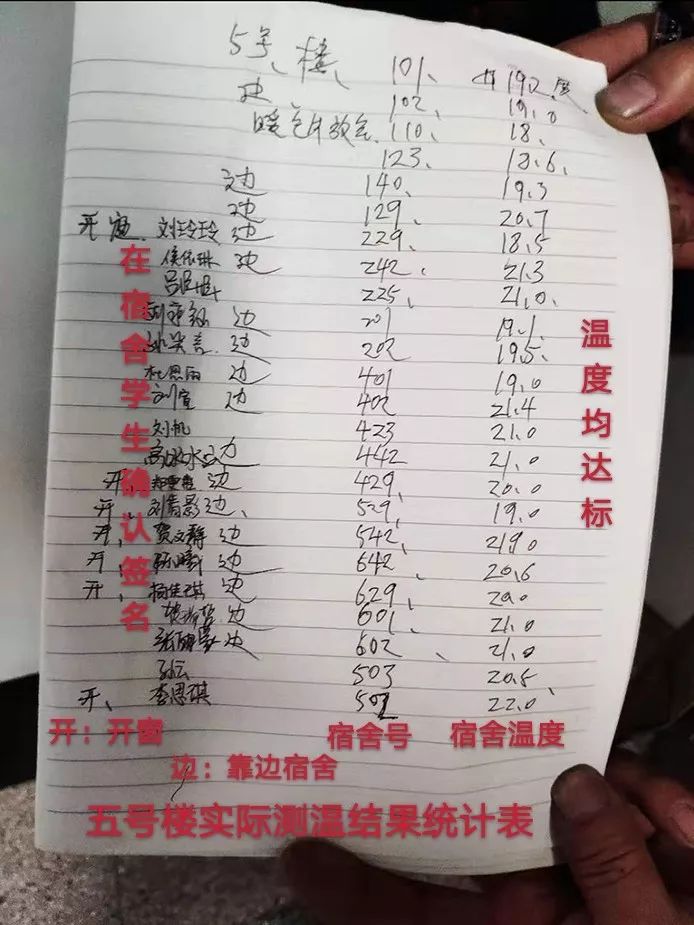 5号、楼、 101、 19.2、度、
边、 102、 19.0
暖气片放气、 110、 18、
123、 18.6、
边 140、 19.3
边 129、 20.7
开窗、 刘玲玲 边 229、 18.5
侯依琳 边 242、 21.3
225、 21.0、
边 201 19.1、
边 202 19.5、
杜思雨 边 401 19.0
刘宣 边 402 21.4
刘帆 423 21.0
边 442 21.0
开、 边 429、 20.0
开、 刘倩影 边、 529、 19.0
开、 贺文静 边 542、
开、 边 642、 20.6
开、 杨佳琪 边 629、 20.0
边 601、 21.0
边 602、 21.0
503 20.5、
开、 李思琪 22.0、
在宿舍学生确认签名
温度均达标
开：开窗 宿舍号 宿舍温度
边：靠边宿舍
五号楼实际测温结果统计表